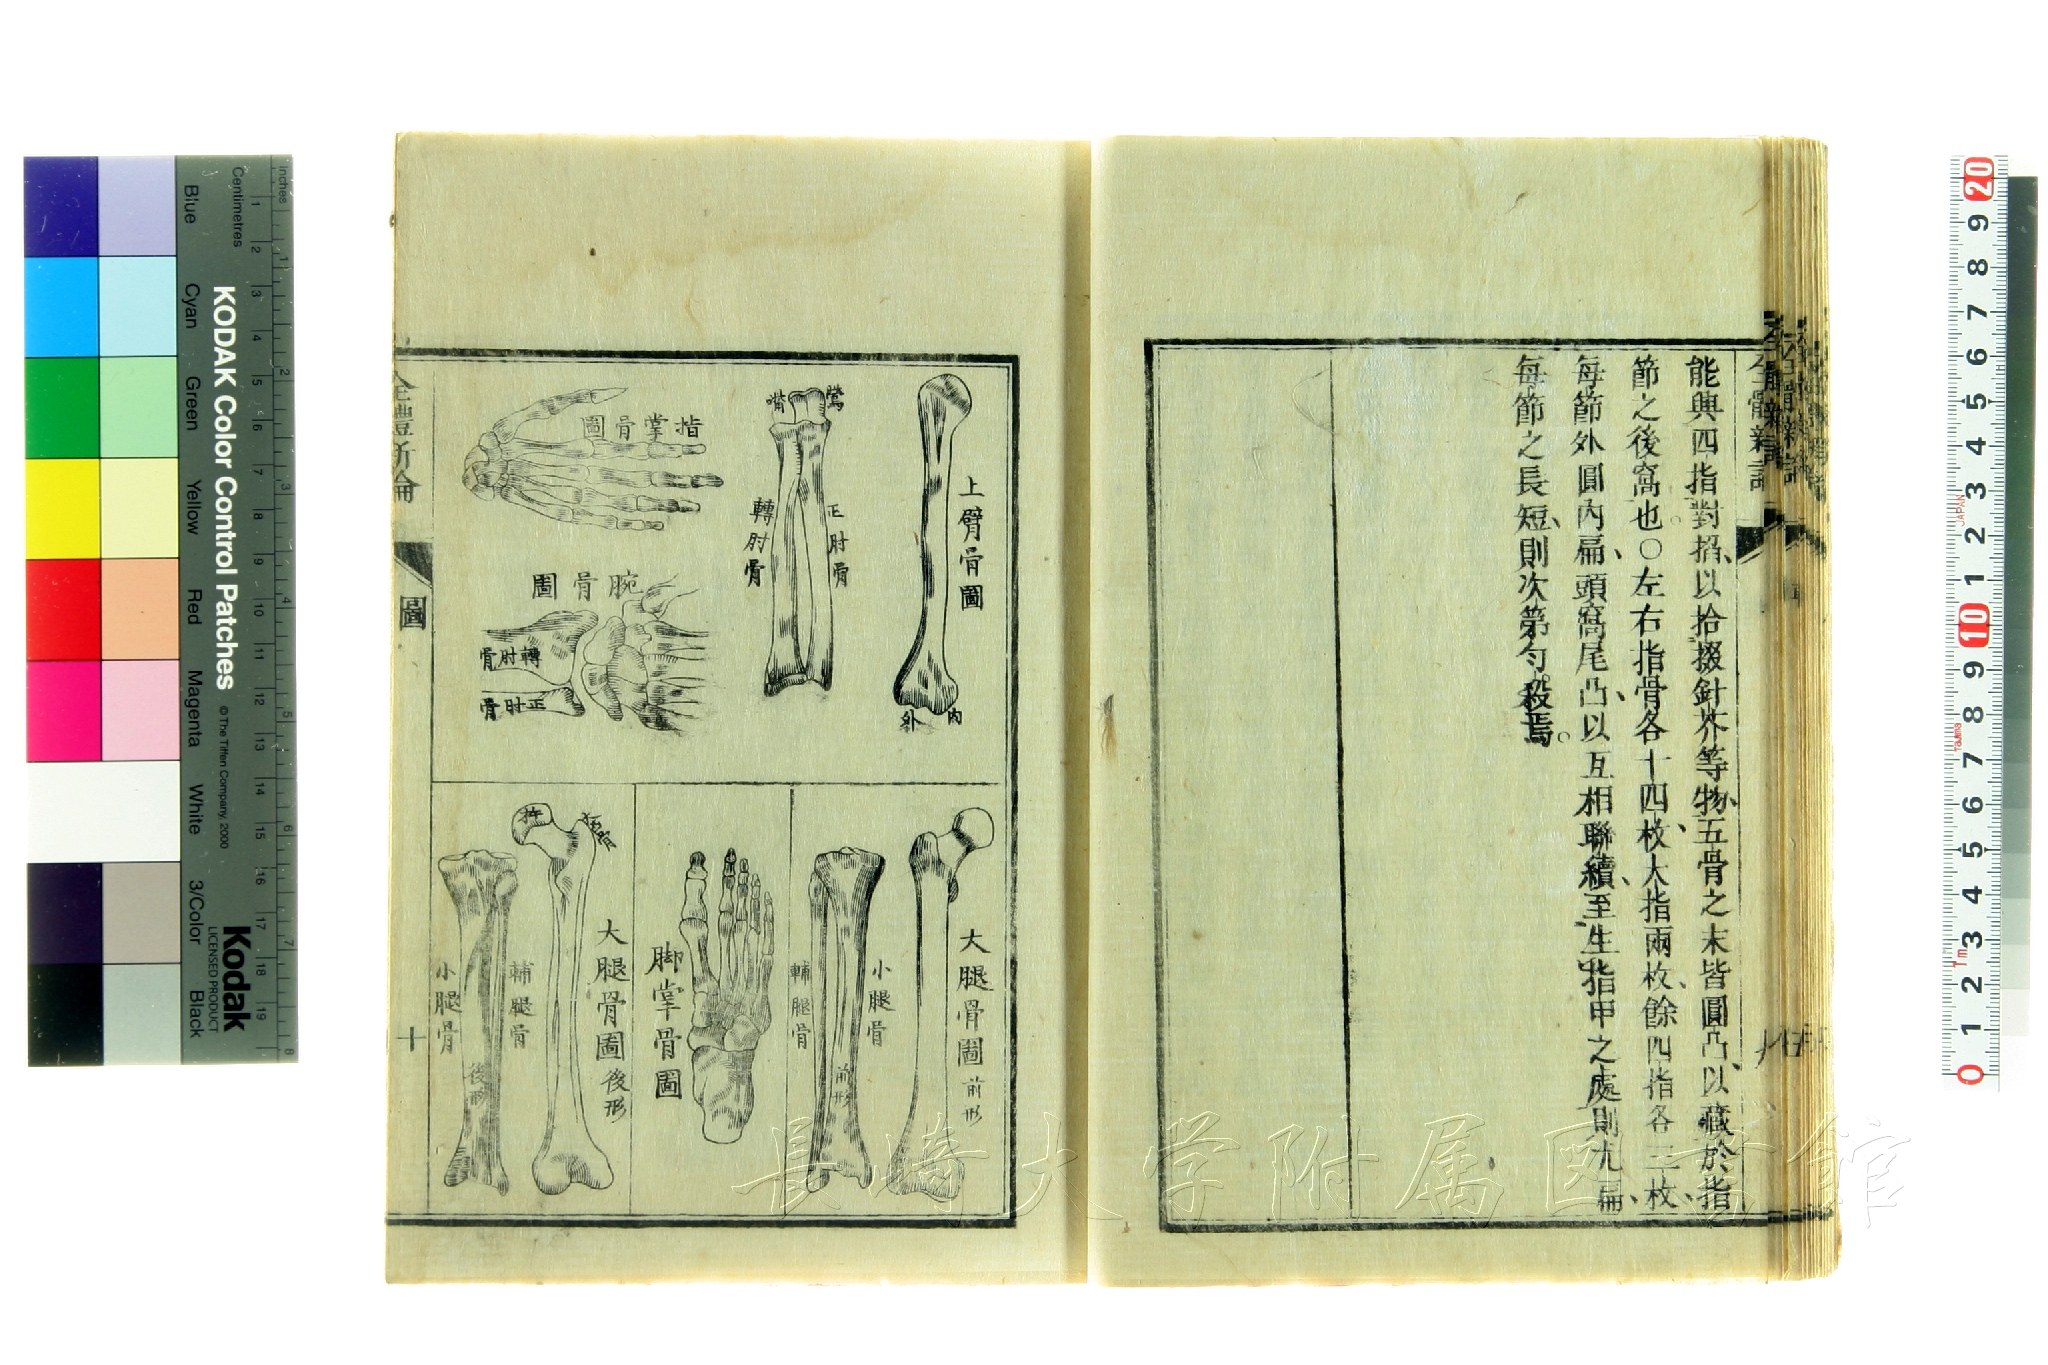 能與四指對搯、以拾掇針芥等物、五骨之末皆圓凸、以藏於指
節之後窩也。○左右指骨各十四枚、大指兩枚、餘四指各三枚、
每節外圓內扁、頭窩尾凸、以互相聯續、至生指甲之處、則尤扁、
每節之長短、則次第勻殺焉。
上臂骨圖
內
外
鶯
嘴
正肘骨
轉肘骨
指掌骨圖
腕骨圖
轉肘骨
正肘骨
大腿骨圖前形
小腿骨
輔腿骨
前形
脚掌骨圖
大腿骨圖後形
輔腿骨
小腿骨
後形
全體新論
圖
十
長崎大学附属図書館
KODAK Color Control Patches
© The Tiffen Company, 2000
Kodak
LICENSED PRODUCT
Inches
Centimetres
Blue
Cyan
Green
Yellow
Red
Magenta
White
3/Color
Black
1 2 3 4 5 6 7 8
1 2 3 4 5 6 7 8 9 10 11 12 13 14 15 16 17 18 19
20 9 8 7 6 5 4 3 2 1 10 9 8 7 6 5 4 3 2 1 0
JAPAN
1m